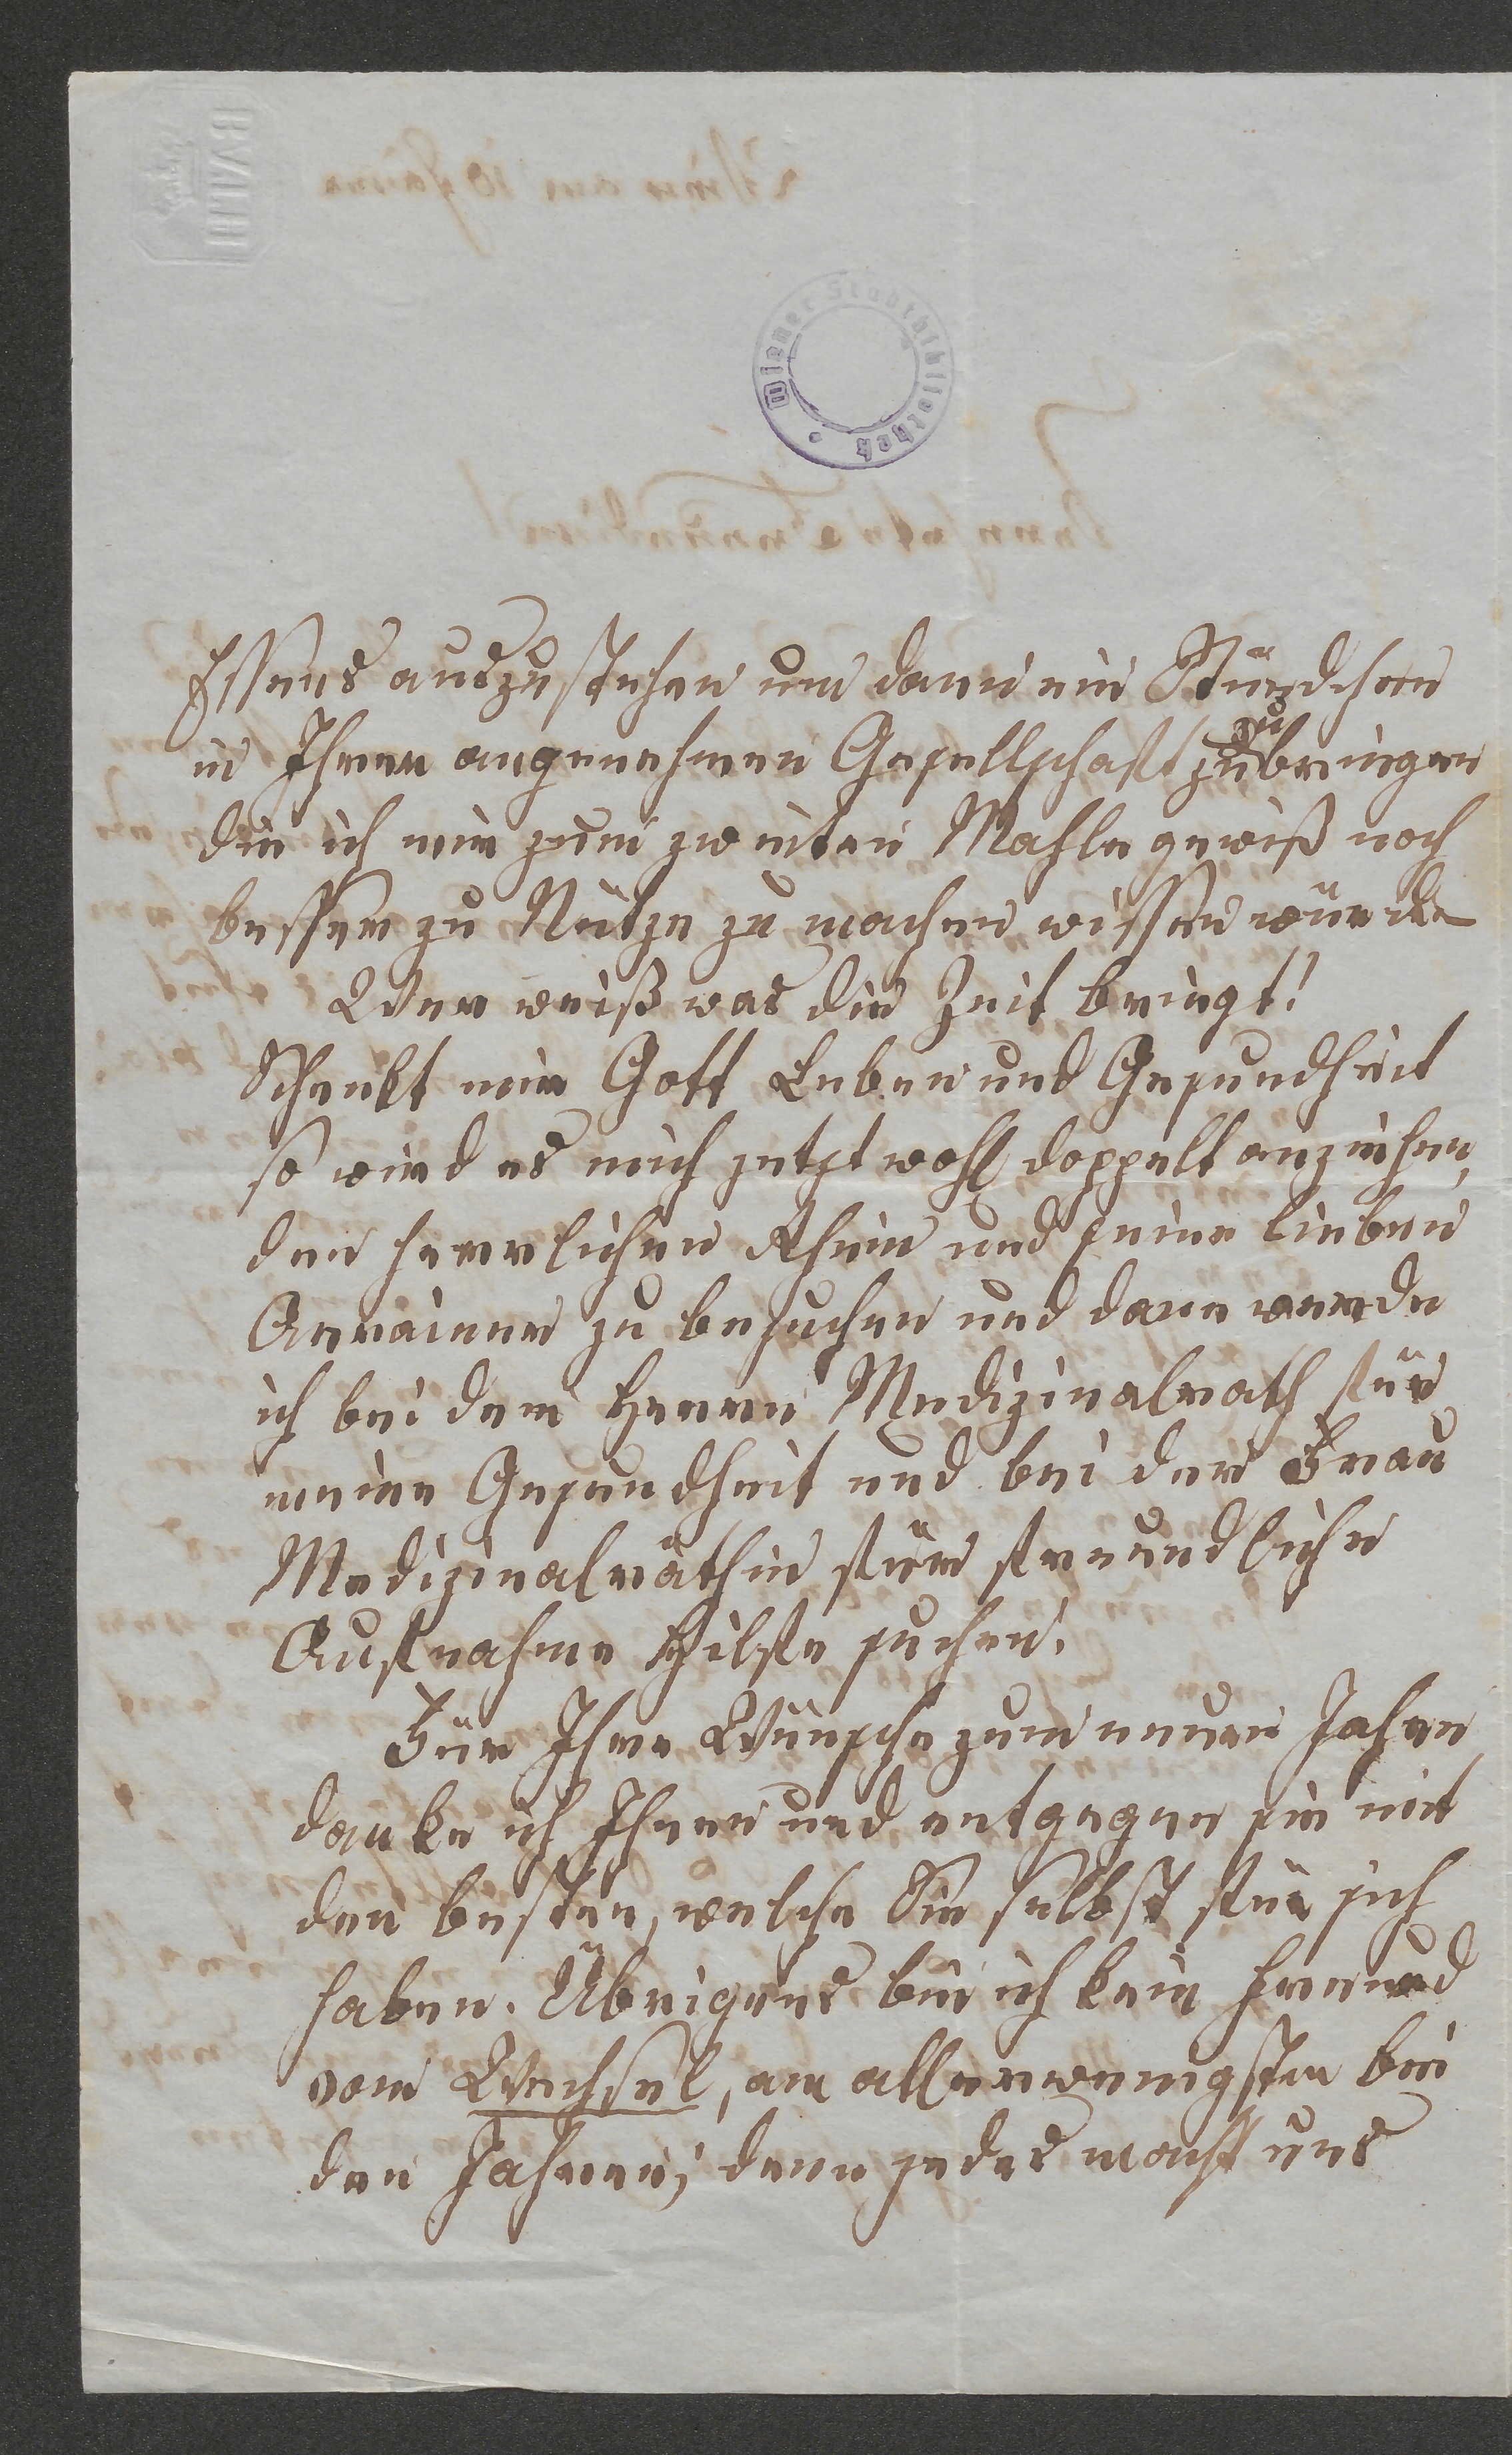 BATH
Wiener Stadtbibliothek
Essens auszustehen um dann ein Stündchen
in Ihrer angenehmen Gesellschaft zuzubringen
die ich mir zum zweiten Mahle gewiß noch
besser zu Nutze zu machen wissen würde
Wer weiß was die Zeit bringt!
Schenkt mir Gott Leben und Gesundheit
so wird es mich jetzt wohl doppelt anziehen,
den herrlichen Rhein und seine lieben
Anrainer zu besuchen und dann werde
ich bei dem Herrn Medizinalrath für
meine Gesundheit und bei der Frau
Medizinalräthin für freundliche
Aufnahme Hilfe suchen.
Für Ihre Wünsche zum neuen Jahre
danke ich Ihnen und entgegne sie mit
den besten, welche Sie selbst für sich
haben. Übrigens bin ich kein Freund
vom Wechsel, am allerwenigsten bei
den Jahren; denn jedes macht uns